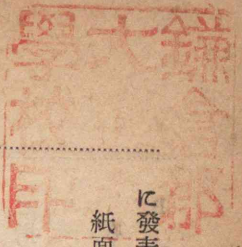 鎌倉
大
學校印
に發表
紙面